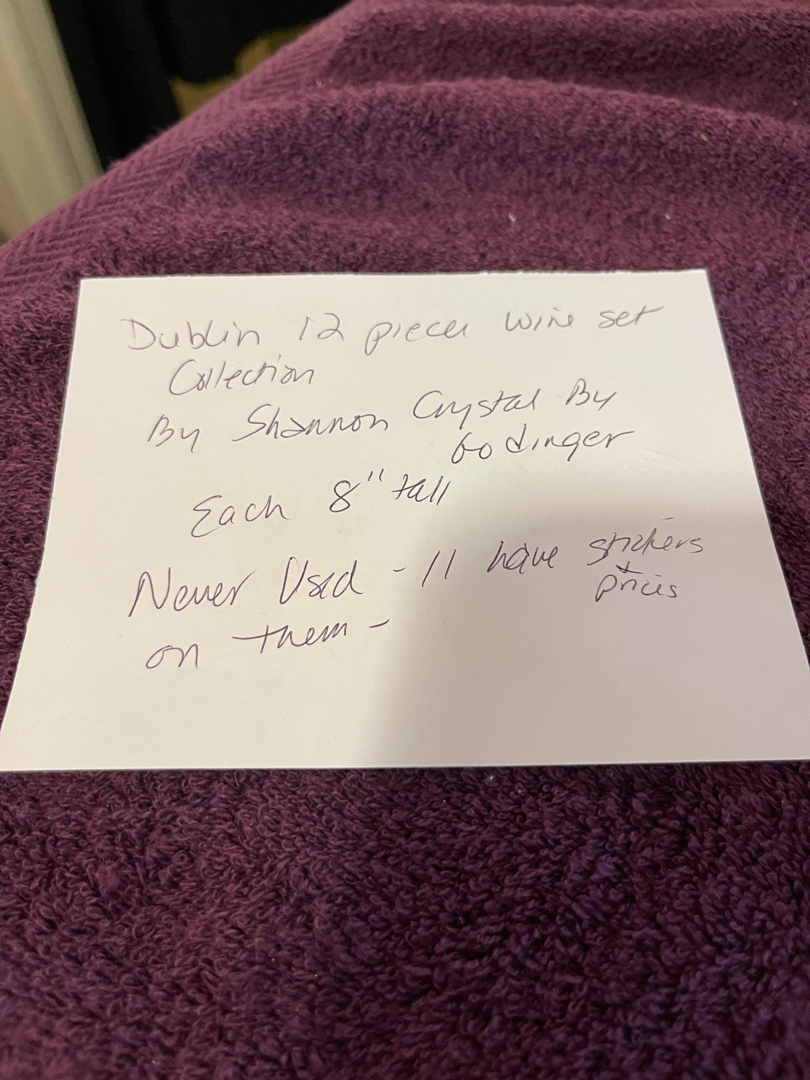 Dublin 12 piece wine set
Collection
By Shannon Crystal By
Godinger
Each 8" tall
Never Used - 11 have stickers
+ prices
on them -